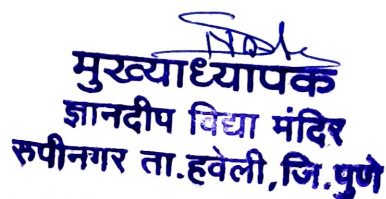 मुख्याध्यापक
ज्ञानदीप विद्या मंदिर
रुपीनगर ता.हवेली,जि.पुणे